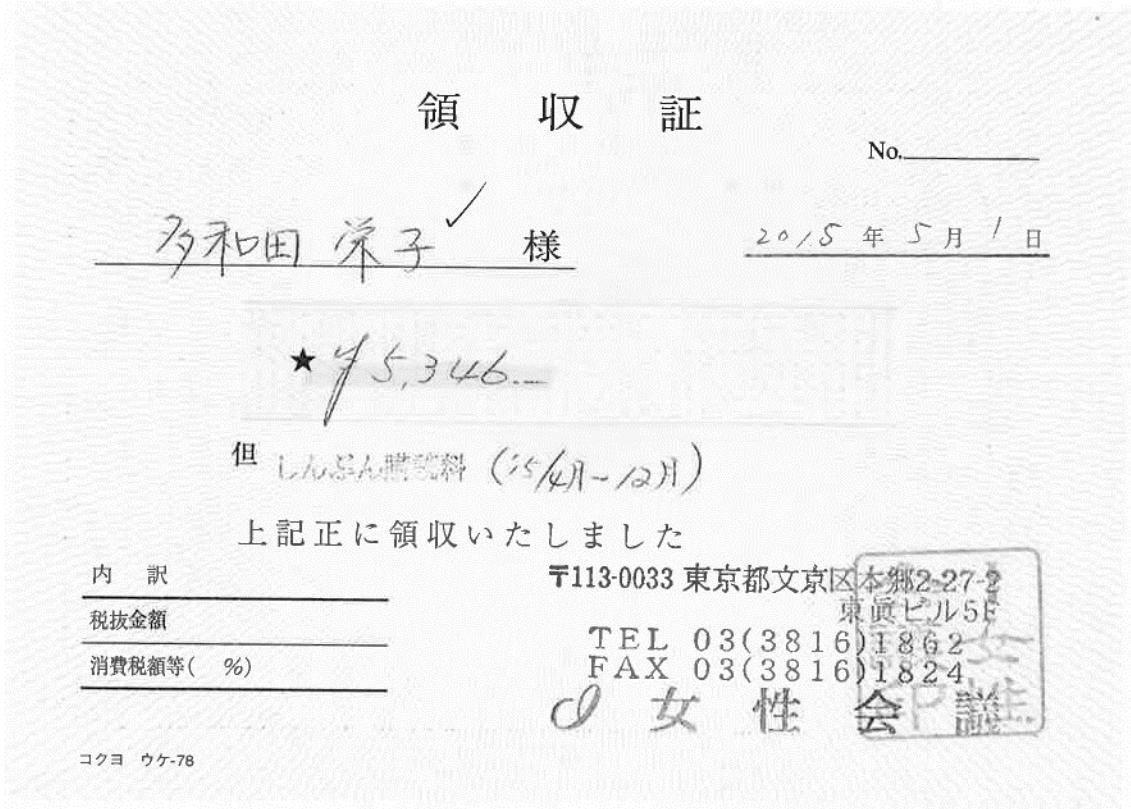 領収証
No.
多和田 栄子 様
2015年5月1日
★ ¥5,346.―
但 しんぶん購読料 ('15/4月~12月)
上記正に領収いたしました
内訳
税抜金額
消費税額等( %)
〒113-0033 東京都文京区本郷2-27-2
東眞ビル5F
TEL 03(3816)1862
FAX 03(3816)1824
女性会議
コクヨ ウケ-78